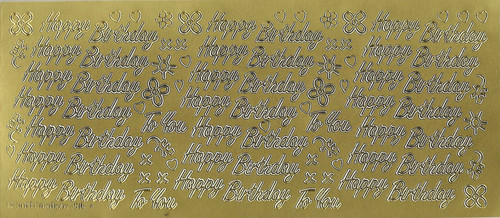 Happy Birthday Happy Birthday Happy Birthday
Happy Birthday Happy Birthday Happy Birthday
Happy Birthday Happy Birthday Happy Birthday
Happy Birthday To You Happy Birthday To You Happy Birthday
Happy Birthday Happy Birthday Happy Birthday
Happy Birthday Happy Birthday Happy Birthday
Happy Birthday To You Happy Birthday To You Happy Birthday